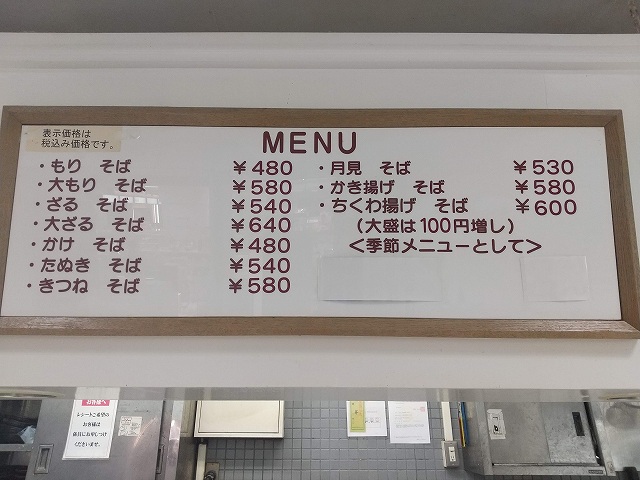 表示価格は
税込み価格です。
MENU
・もり そば ￥480
・大もり そば ￥580
・ざる そば ￥540
・大ざる そば ￥640
・かけ そば ￥480
・たぬき そば ￥540
・きつね そば ￥580
・月見 そば ￥530
・かき揚げ そば ￥580
・ちくわ揚げ そば ￥600
(大盛は100円増し)
＜季節メニューとして＞
お客様へ
レシートご希望の
お客様は
係員にお申しつけ
くださいませ。